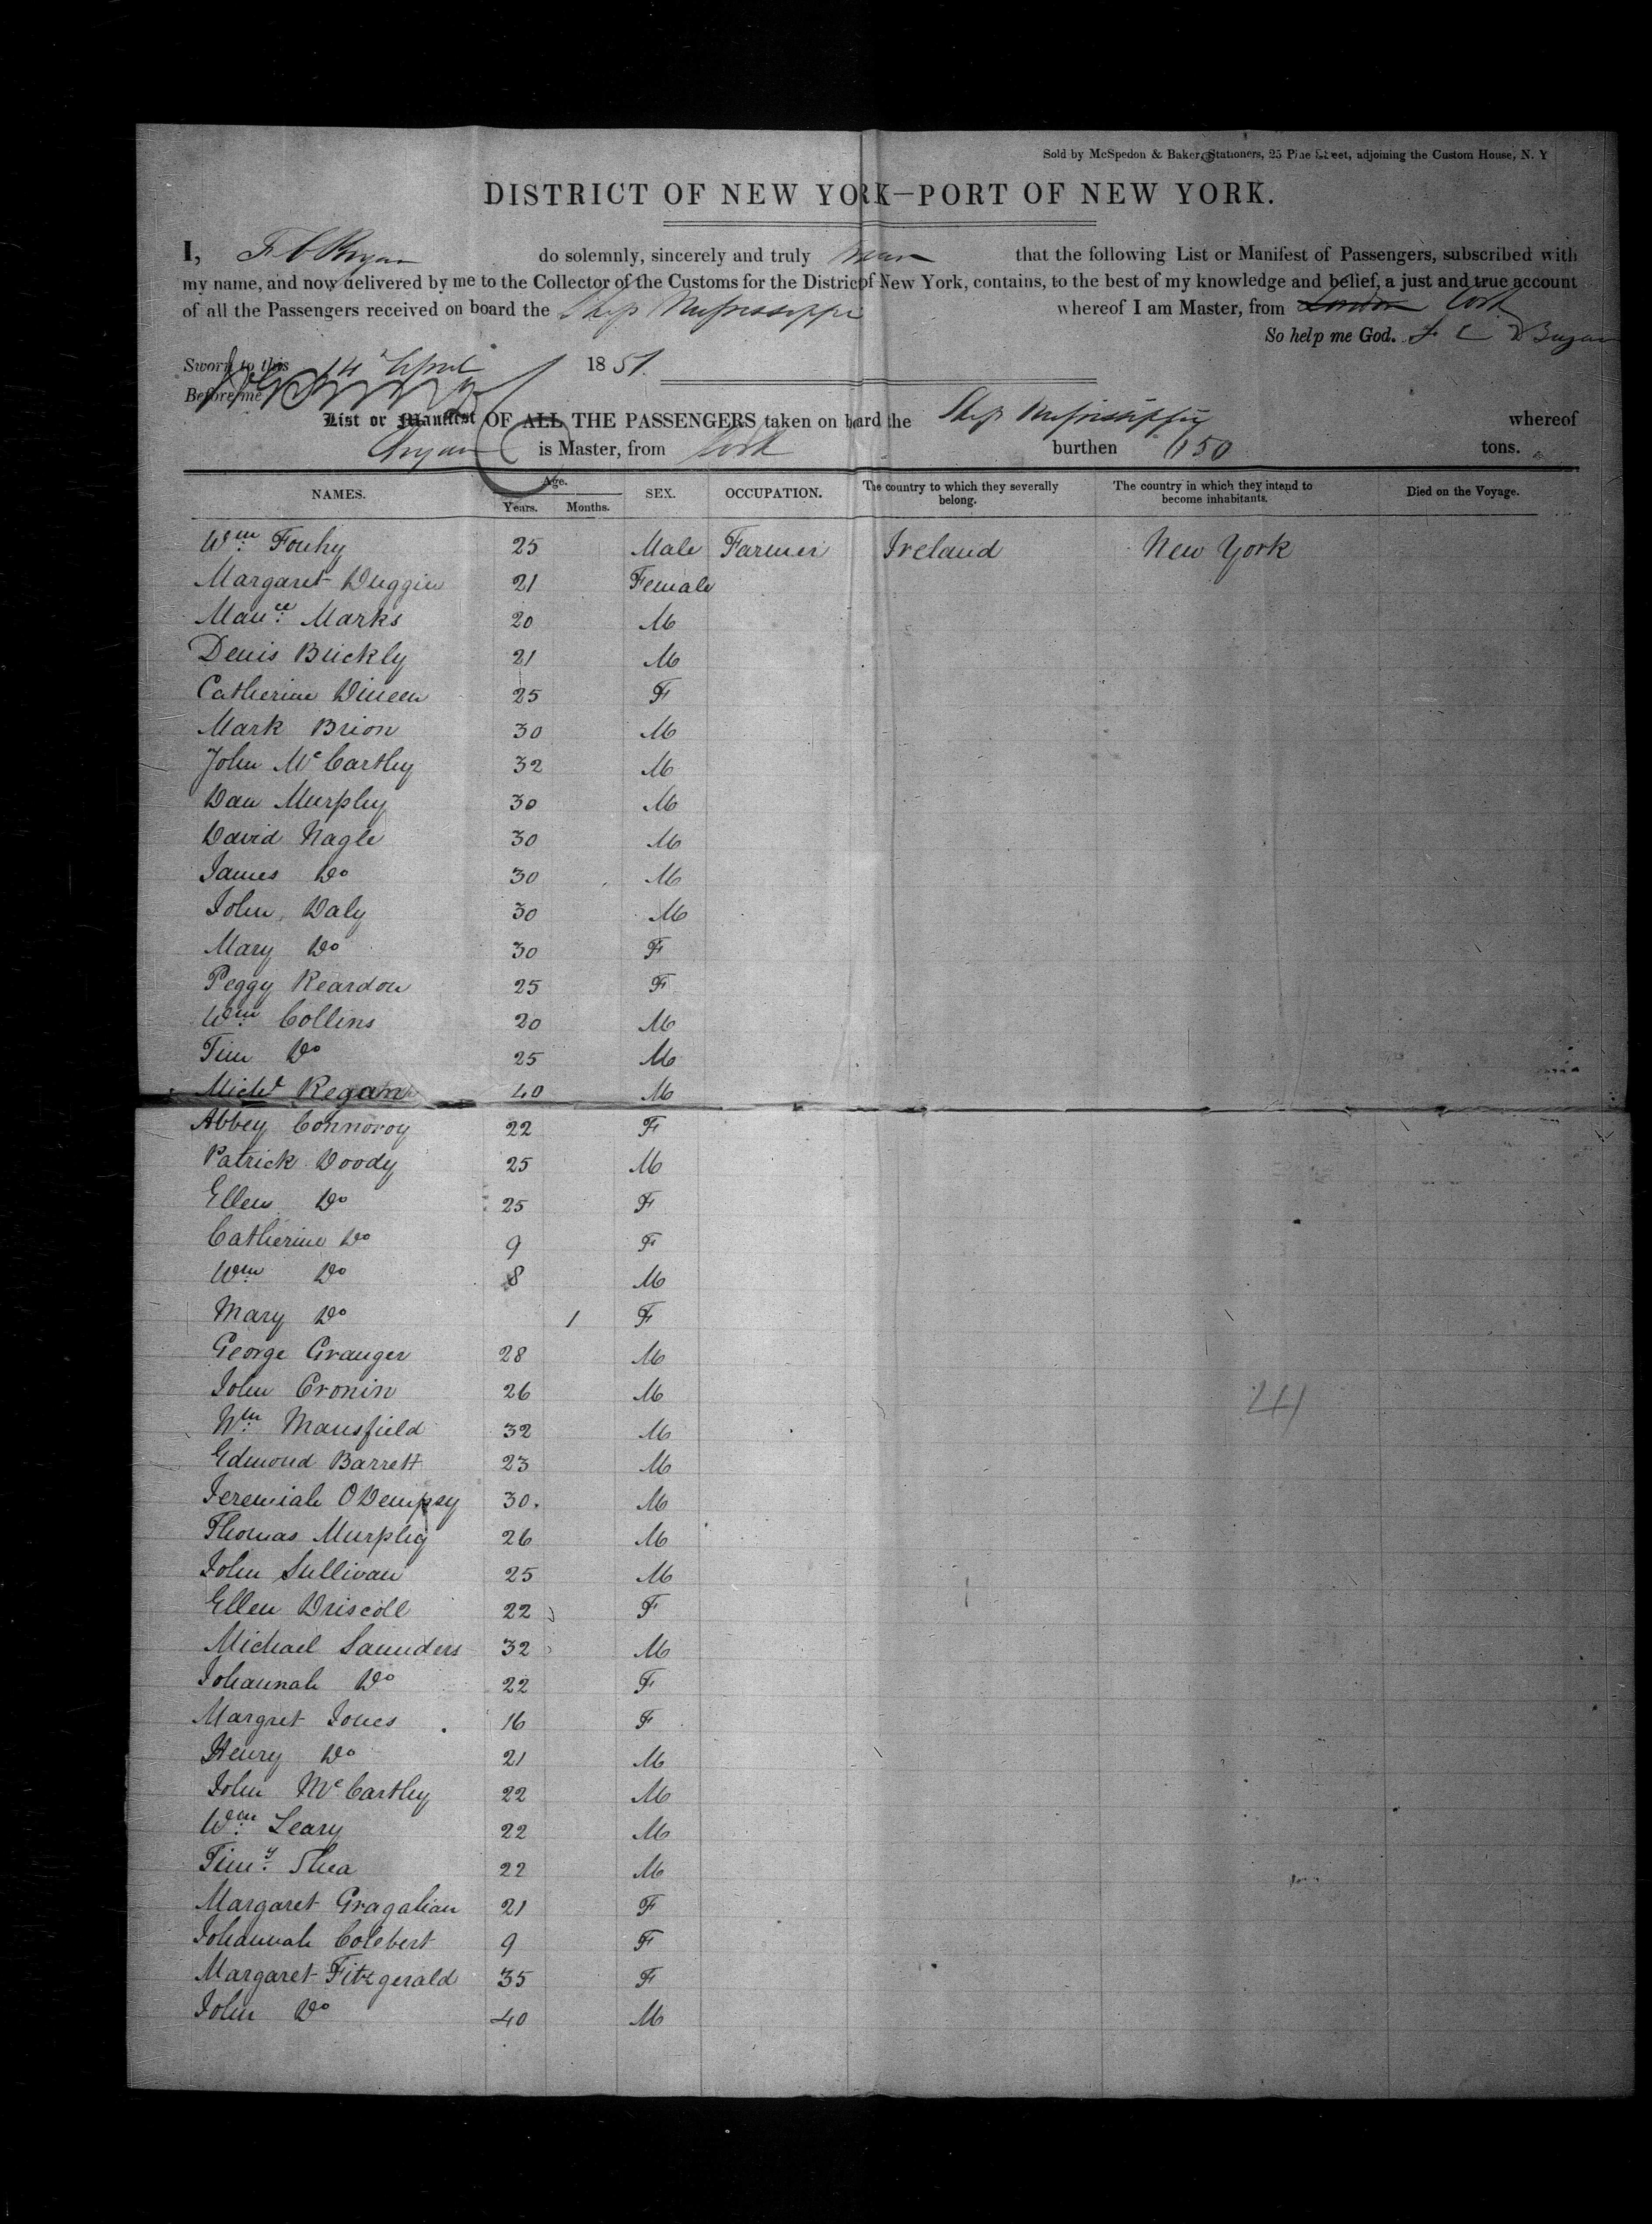 Sold by McSpedon & Baker, Stationers, 25 Pine Street, adjoining the Custom House, N. Y
DISTRICT OF NEW YORK—PORT OF NEW YORK.
I, do solemnly, sincerely and truly swear that the following List or Manifest of Passengers, subscribed with
my name, and now delivered by me to the Collector of the Customs for the District of New York, contains, to the best of my knowledge and belief, a just and true account
of all the Passengers received on board the Ship Mississippi whereof I am Master, from London Cork
So help me God.
Sworn to this 14 April 1851.
Before me
List or Manifest OF ALL THE PASSENGERS taken on board the Ship Mississippi whereof
is Master, from Cork burthen tons.
NAMES. Age. Years. Months. SEX. OCCUPATION. The country to which they severally belong. The country in which they intend to become inhabitants. Died on the Voyage.
Wm Fouhy 25 Male Farmer Ireland New York
Margaret Duggin 21 Female
Mauce Marks 20 M
Denis Buckly 21 M
Catherine Dineen 25 F
Mark Brion 30 M
John McCarthy 32 M
Dan Murphy 30 M
David Nagle 30 M
James Do 30 M
John Daly 30 M
Mary Do 30 F
Peggy Reardon 25 F
Wm Collins 20 M
Tim Do 25 M
Michl Regan 40 M
Abbey Connoroy 22 F
Patrick Doody 25 M
Ellen Do 25 F
Catherine Do 9 F
Wm Do 8 M
Mary Do 1 F
George Granger 28 M
John Cronin 26 M
Wm Mansfield 32 M
Edmond Barrett 23 M
Jeremiah ODempsy 30. M
Thomas Murphy 26 M
John Sullivan 25 M
Ellen Driscoll 22 F
Michael Saunders 32 M
Johannah Do 22 F
Margret Jones 16 F
Henry Do 21 M
John McCarthy 22 M
Wm Leary 22 M
Timy Shea 22 M
Margaret Gragahan 21 F
Johannah Colebert 9 F
Margaret Fitzgerald 35 F
John Do 40 M
41